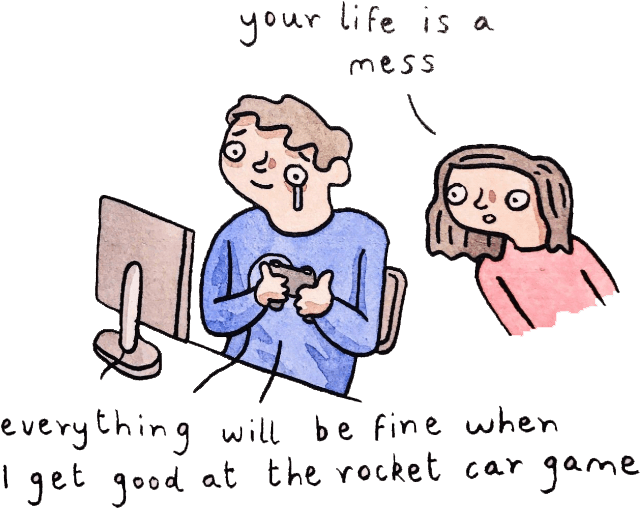 your life is a
mess
everything will be fine when
I get good at the rocket car game